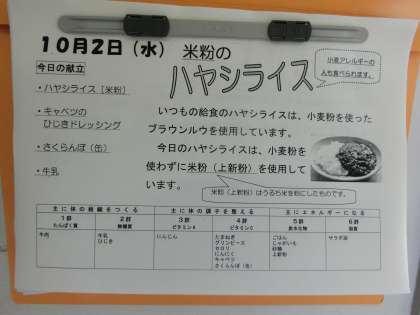 10月2日（水）
米粉の
ハヤシライス
小麦アレルギーの
人も食べられます。
今日の献立
・ハヤシライス［米粉］
・キャベツの
ひじきドレッシング
・さくらんぼ（缶）
・牛乳
いつもの給食のハヤシライスは、小麦粉を使った
ブラウンルウを使用しています。
今日のハヤシライスは、小麦粉を
使わずに米粉（上新粉）を使用して
います。
米粉（上新粉）はうるち米を粉にしたものです。
主に体の組織をつくる 主に体の調子を整える 主にエネルギーになる
1群 2群 3群 4群 5群 6群
たんぱく質 無機質 ビタミンA ビタミンC 炭水化物 脂質
牛肉
牛乳
ひじき
にんじん
たまねぎ
グリンピース
セロリ
にんにく
キャベツ
さくらんぼ（缶）
ごはん
じゃがいも
砂糖
上新粉
サラダ油